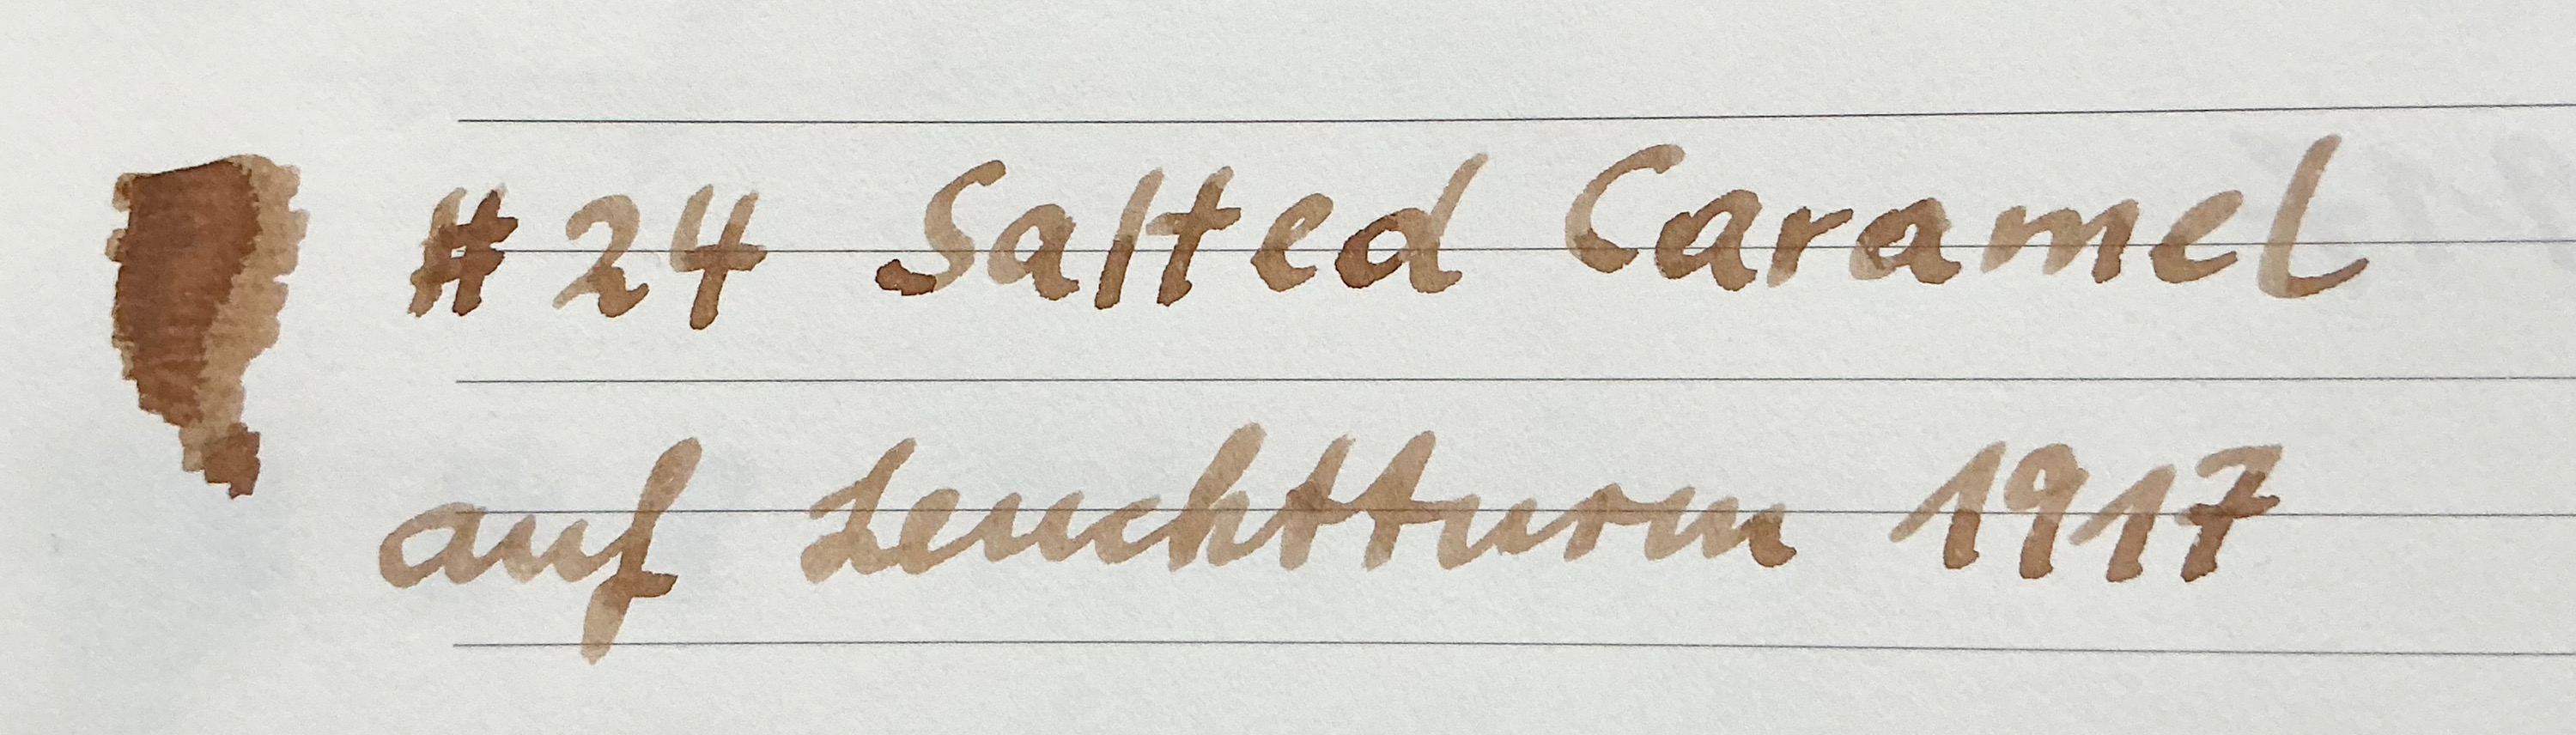 # 24 Salted Caramel
auf Leuchtturm 1917